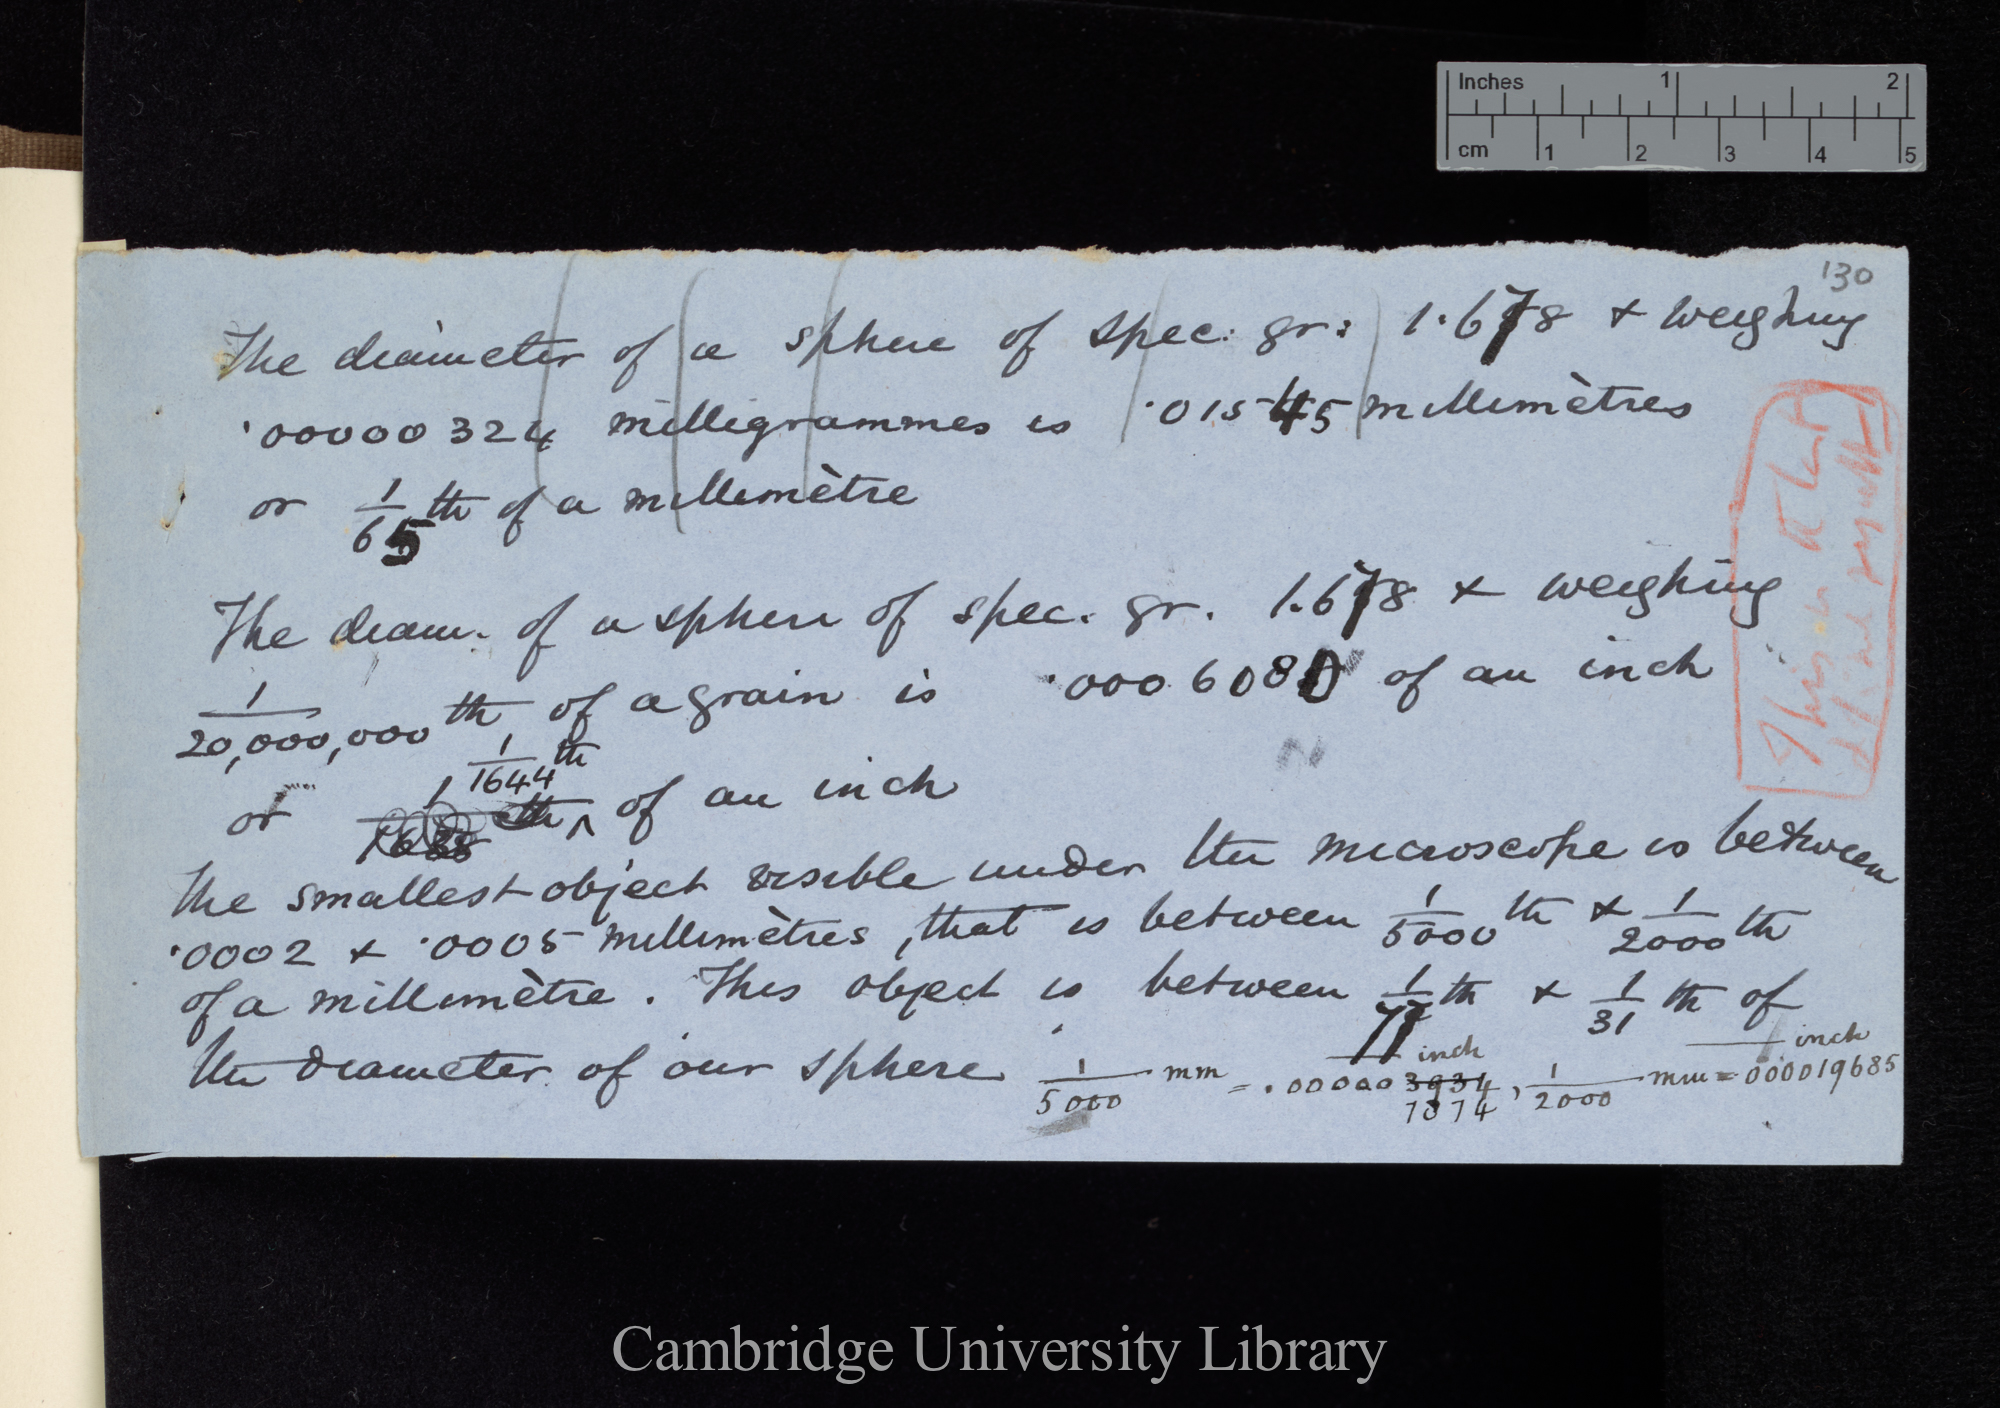 Inches 1 2
cm 1 2 3 4 5
130
The diameter of a sphere of spec. gr: 1.678 & weighing
.00000324 milligrammes is .01545 millimètres
or 1/65th of a millimètre
The diam. of a sphere of spec. gr. 1.678 & weighing
1/20,000,000th of a grain is .0006080 of an inch
1/1644th
or of an inch
The smallest object visible under the microscope is between
.0002 & .0005 millimètres, that is between 1/5000th & 1/2000th
of a millimètre. This object is between 1/77th & 1/31th of
the diameter of our sphere 1/5000 mm = .00000 3934 inch, 1/2000 mm = .000019685 inch
7874
This
Cambridge University Library